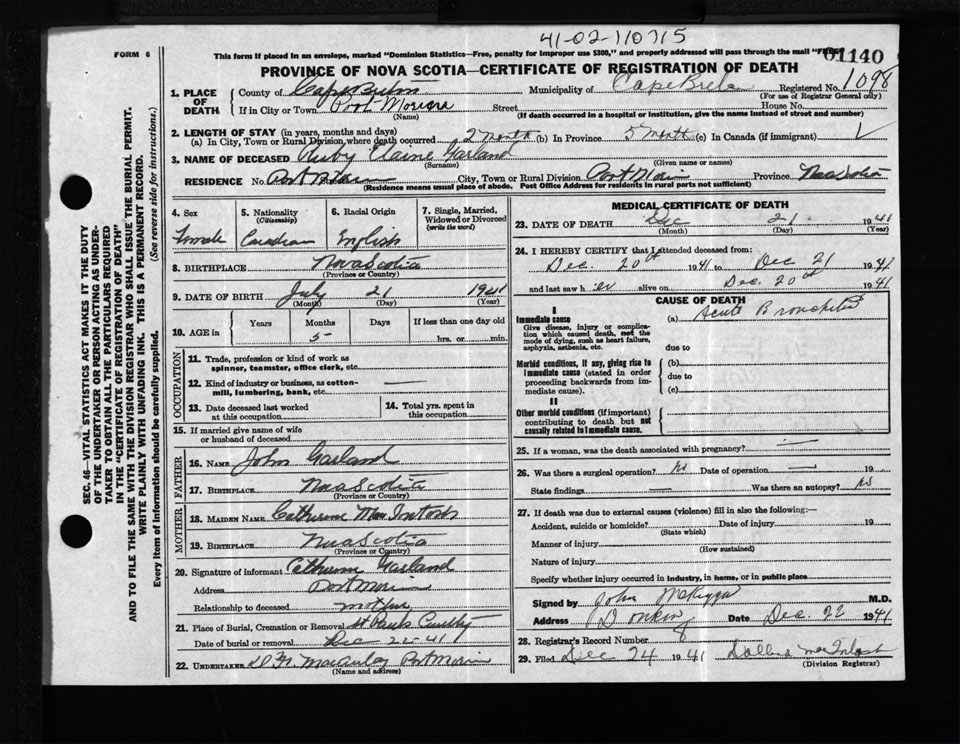 41-02-110715
FORM 6
This form if placed in an envelope, marked "Dominion Statistics—Free, penalty for improper use $300," and properly addressed will pass through the mail "FREE"
01140
PROVINCE OF NOVA SCOTIA—CERTIFICATE OF REGISTRATION OF DEATH
1098
1. PLACE OF DEATH
County of Cape Breton
Municipality of Cape Breton
Registered No.
(For use of Registrar General only)
If in City or Town Port Morien
(Name)
Street
House No.
(If death occurred in a hospital or institution, give the name instead of street and number)
2. LENGTH OF STAY (in years, months and days)
(a) In City, Town or Rural Division, where death occurred 2 Month (b) In Province 5 Month (c) In Canada (if immigrant)
3. NAME OF DECEASED Ruby Elaine Garland
(Surname) (Given name or names)
RESIDENCE No. Port Morien City, Town or Rural Division Port Morien Province Nova Scotia
(Residence means usual place of abode. Post Office Address for residents in rural parts not sufficient)
4. Sex
Female
5. Nationality
(Citizenship)
Canadian
6. Racial Origin
English
7. Single, Married, Widowed or Divorced
(write the word)
8. BIRTHPLACE Nova Scotia
(Province or Country)
9. DATE OF BIRTH July 21 1941
(Month) (Day) (Year)
10. AGE in
Years Months Days If less than one day old
5 hrs. or min.
OCCUPATION
11. Trade, profession or kind of work as
spinner, teamster, office clerk, etc.
12. Kind of industry or business, as cotton-
mill, lumbering, bank, etc.
13. Date deceased last worked
at this occupation
14. Total yrs. spent in
this occupation
15. If married give name of wife
or husband of deceased
FATHER
16. NAME John Garland
17. BIRTHPLACE Nova Scotia
(Province or Country)
MOTHER
18. MAIDEN NAME Catherine MacIntosh
19. BIRTHPLACE Nova Scotia
(Province or Country)
20. Signature of informant Catherine Garland
Address Port Morien
Relationship to deceased mother
21. Place of Burial, Cremation or Removal St Pauls
Date of burial or removal Dec 22-41
22. UNDERTAKER MacAulay Port Morien
(Name and address)
MEDICAL CERTIFICATE OF DEATH
23. DATE OF DEATH Dec 21 1941
(Month) (Day) (Year)
24. I HEREBY CERTIFY that I attended deceased from:
Dec. 20th 1941 to Dec 21 1941
and last saw h er alive on Dec. 20th 1941
CAUSE OF DEATH
I
Immediate cause
Give disease, injury or complica-
tion which caused death, not the
mode of dying, such as heart failure,
asphyxia, asthenia, etc.
(a) Acute Bronchitis
due to
Morbid conditions, if any, giving rise to
immediate cause (stated in order
proceeding backwards from im-
mediate cause).
(b)
due to
(c)
II
Other morbid conditions (if important)
contributing to death but not
causally related to immediate cause.
25. If a woman, was the death associated with pregnancy?
26. Was there a surgical operation? no Date of operation 19
State findings Was there an autopsy? no
27. If death was due to external causes (violence) fill in also the following:—
Accident, suicide or homicide? Date of injury 19
(State which)
Manner of injury
(How sustained)
Nature of injury
Specify whether injury occurred in industry, in home, or in public place
Signed by John M.D.
Address Donkin Date Dec. 22 1941
28. Registrar's Record Number 8
29. Filed Dec 24 1941 MacIntosh
(Division Registrar)
SEC. 46—VITAL STATISTICS ACT MAKES IT THE DUTY
OF THE UNDERTAKER OR PERSON ACTING AS UNDER-
TAKER TO OBTAIN ALL THE PARTICULARS REQUIRED
IN THE "CERTIFICATE OF REGISTRATION OF DEATH"
AND TO FILE THE SAME WITH THE DIVISION REGISTRAR WHO SHALL ISSUE THE BURIAL PERMIT.
WRITE PLAINLY WITH UNFADING INK. THIS IS A PERMANENT RECORD.
Every item of Information should be carefully supplied. (See reverse side for instructions.)